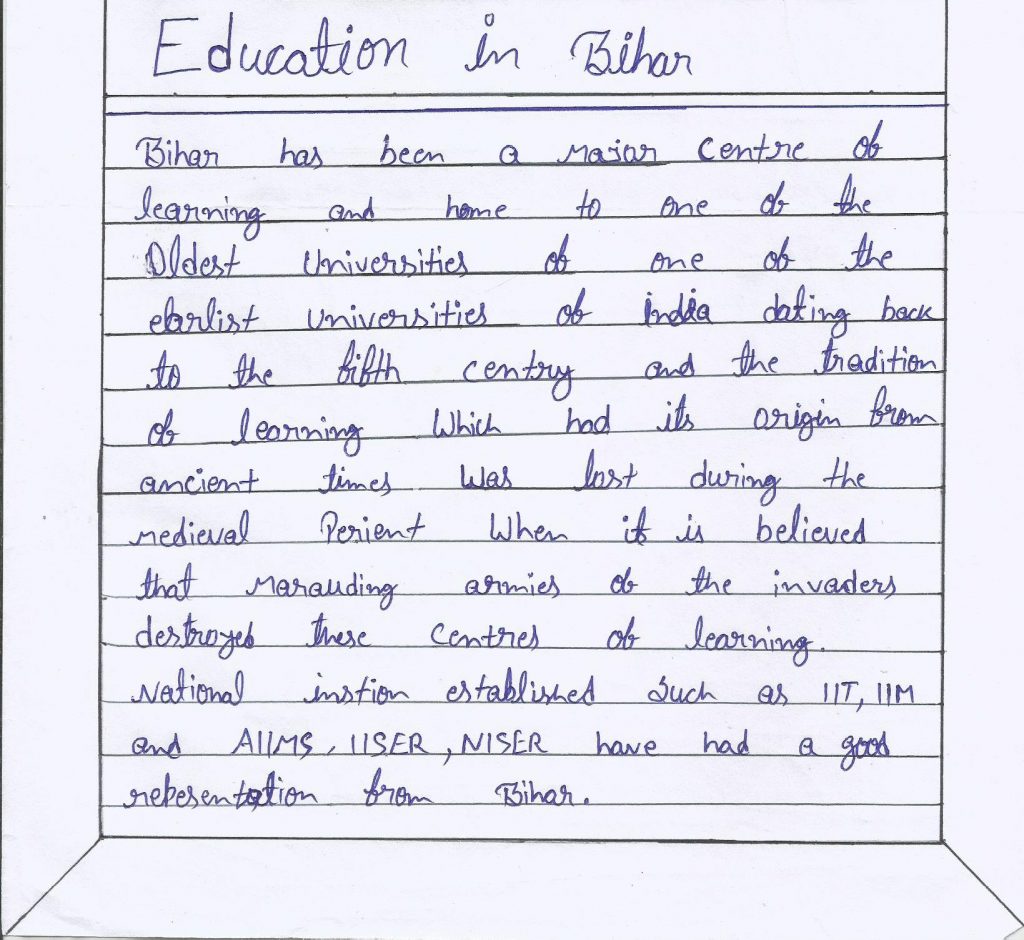 Education in Bihar
Bihar has been a Majar Centre of
learning and home to one of the
Oldest Universities of one of the
earlist Universities of india dating back
to the fifth centry and the tradition
of learning Which had its origin from
ancient times Was lost during the
medieval Perient When it is believed
that Marauding armies of the invaders
destroyed these Centres of learning.
National instion established Such as IIT, IIM
and AIIMS, IISER, NISER have had a good
rebesentation from Bihar.